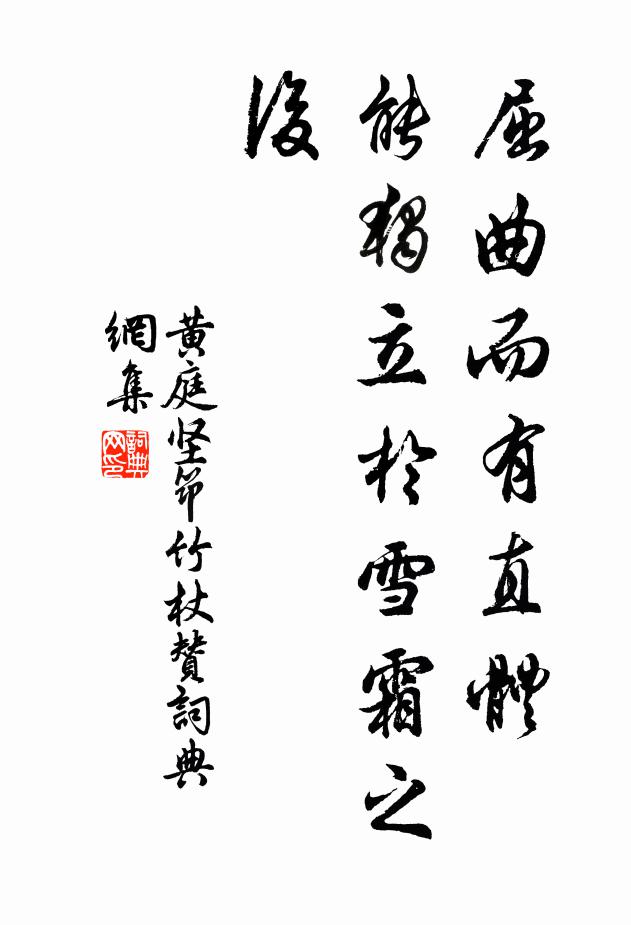 屈曲而有直體
能獨立於雪霜之
後
黃庭坚筇竹杖贊詞典
網集
詞典
网印